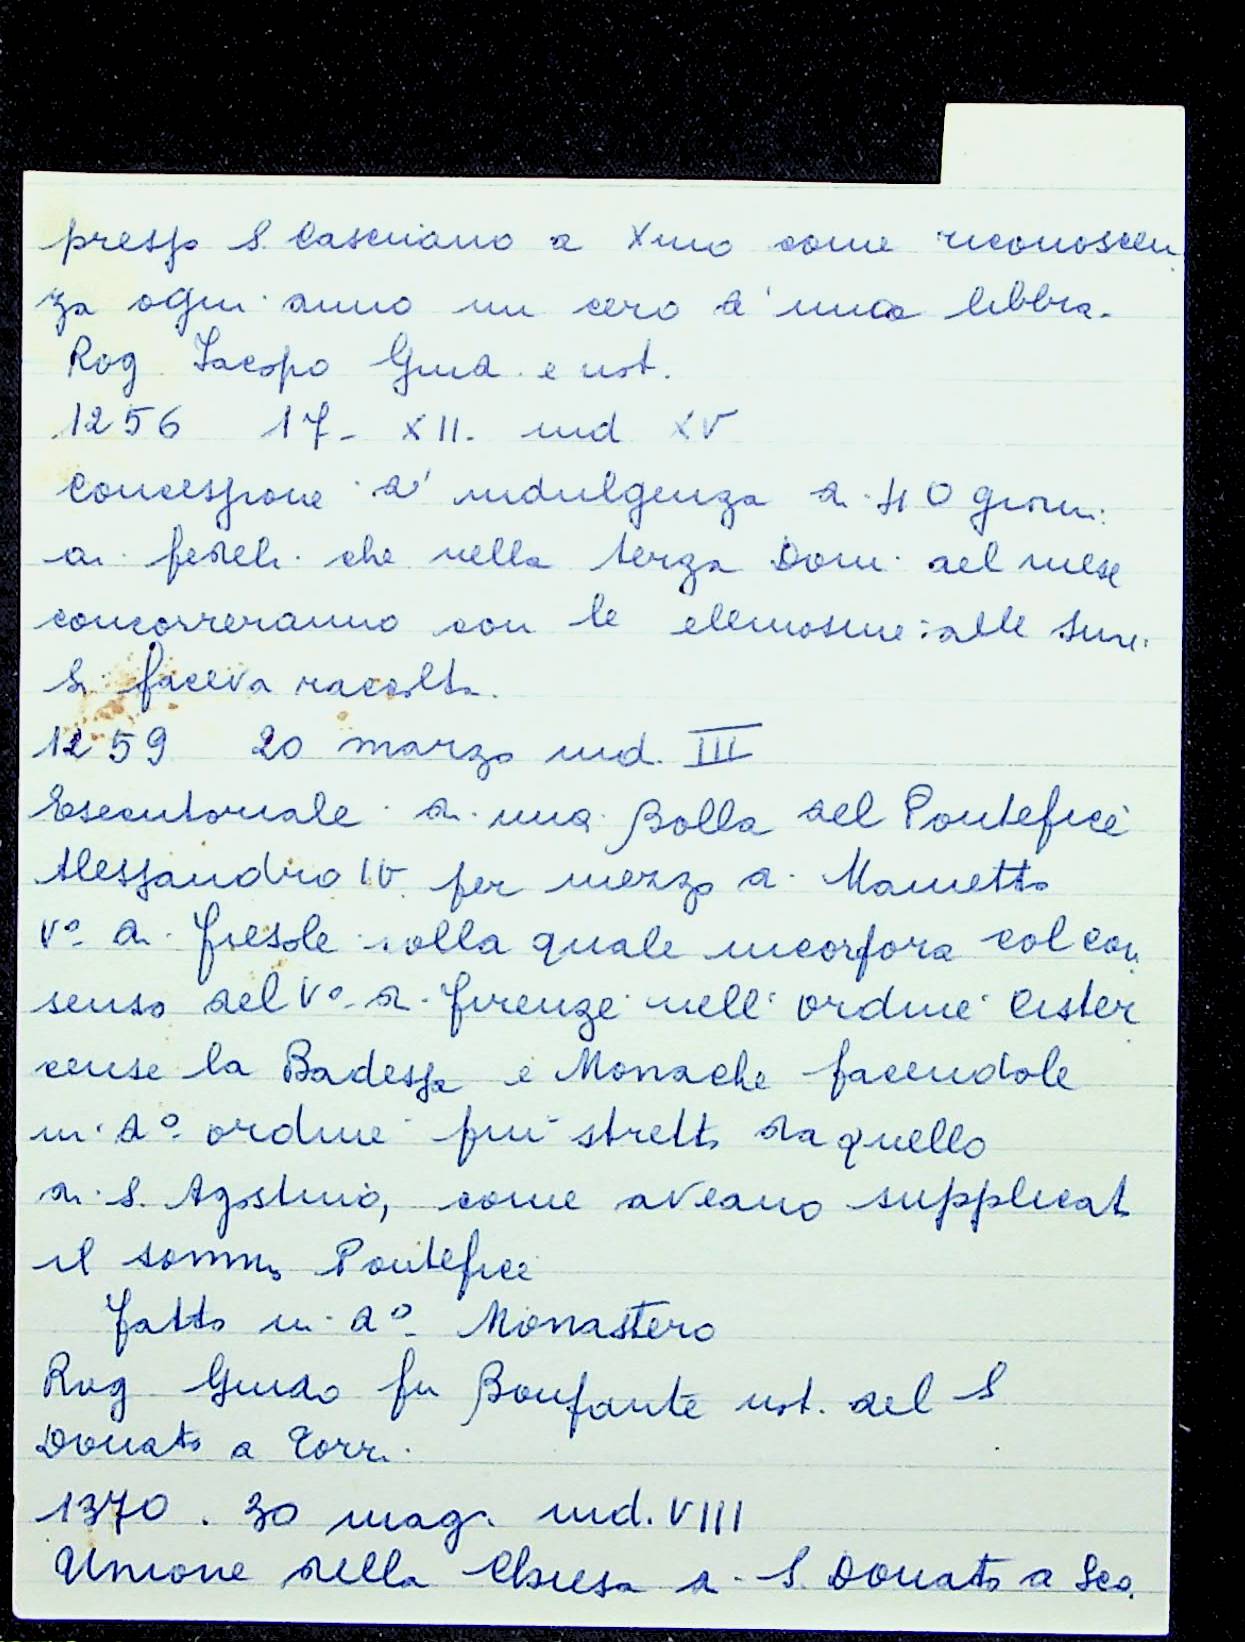 presso S. Casciano a Xmo come riconoscen
za ogni anno un cero d'una libbra.
Rog Iacopo Guid. e not.
1256 17- XII. ind XV
Concessione d'indulgenza di 40 giorni
ai fedeli che nella terza Dom. del mese
concorreranno con le elemosine: alle
Si faceva raccolta.
1259 20 marzo ind. III
Esecutoriale di una Bolla del Pontefice
Alessandro IV per mezzo di Mametto
Vo. di Fiesole colla quale incorpora col con
senso del Vo. di Firenze nell'ordine Cister
cense la Badessa e Monache facendole
in do. ordine piu stretto da quello
di S. Agostino, come aveano supplicato
il sommo Pontefice
Fatto in do. Monastero
Rog Guido fu Bonfante not. del S
Donato a Torri
1370. 30 mag. ind. VIII
Unione della Chiesa di S. Donato a Sco.